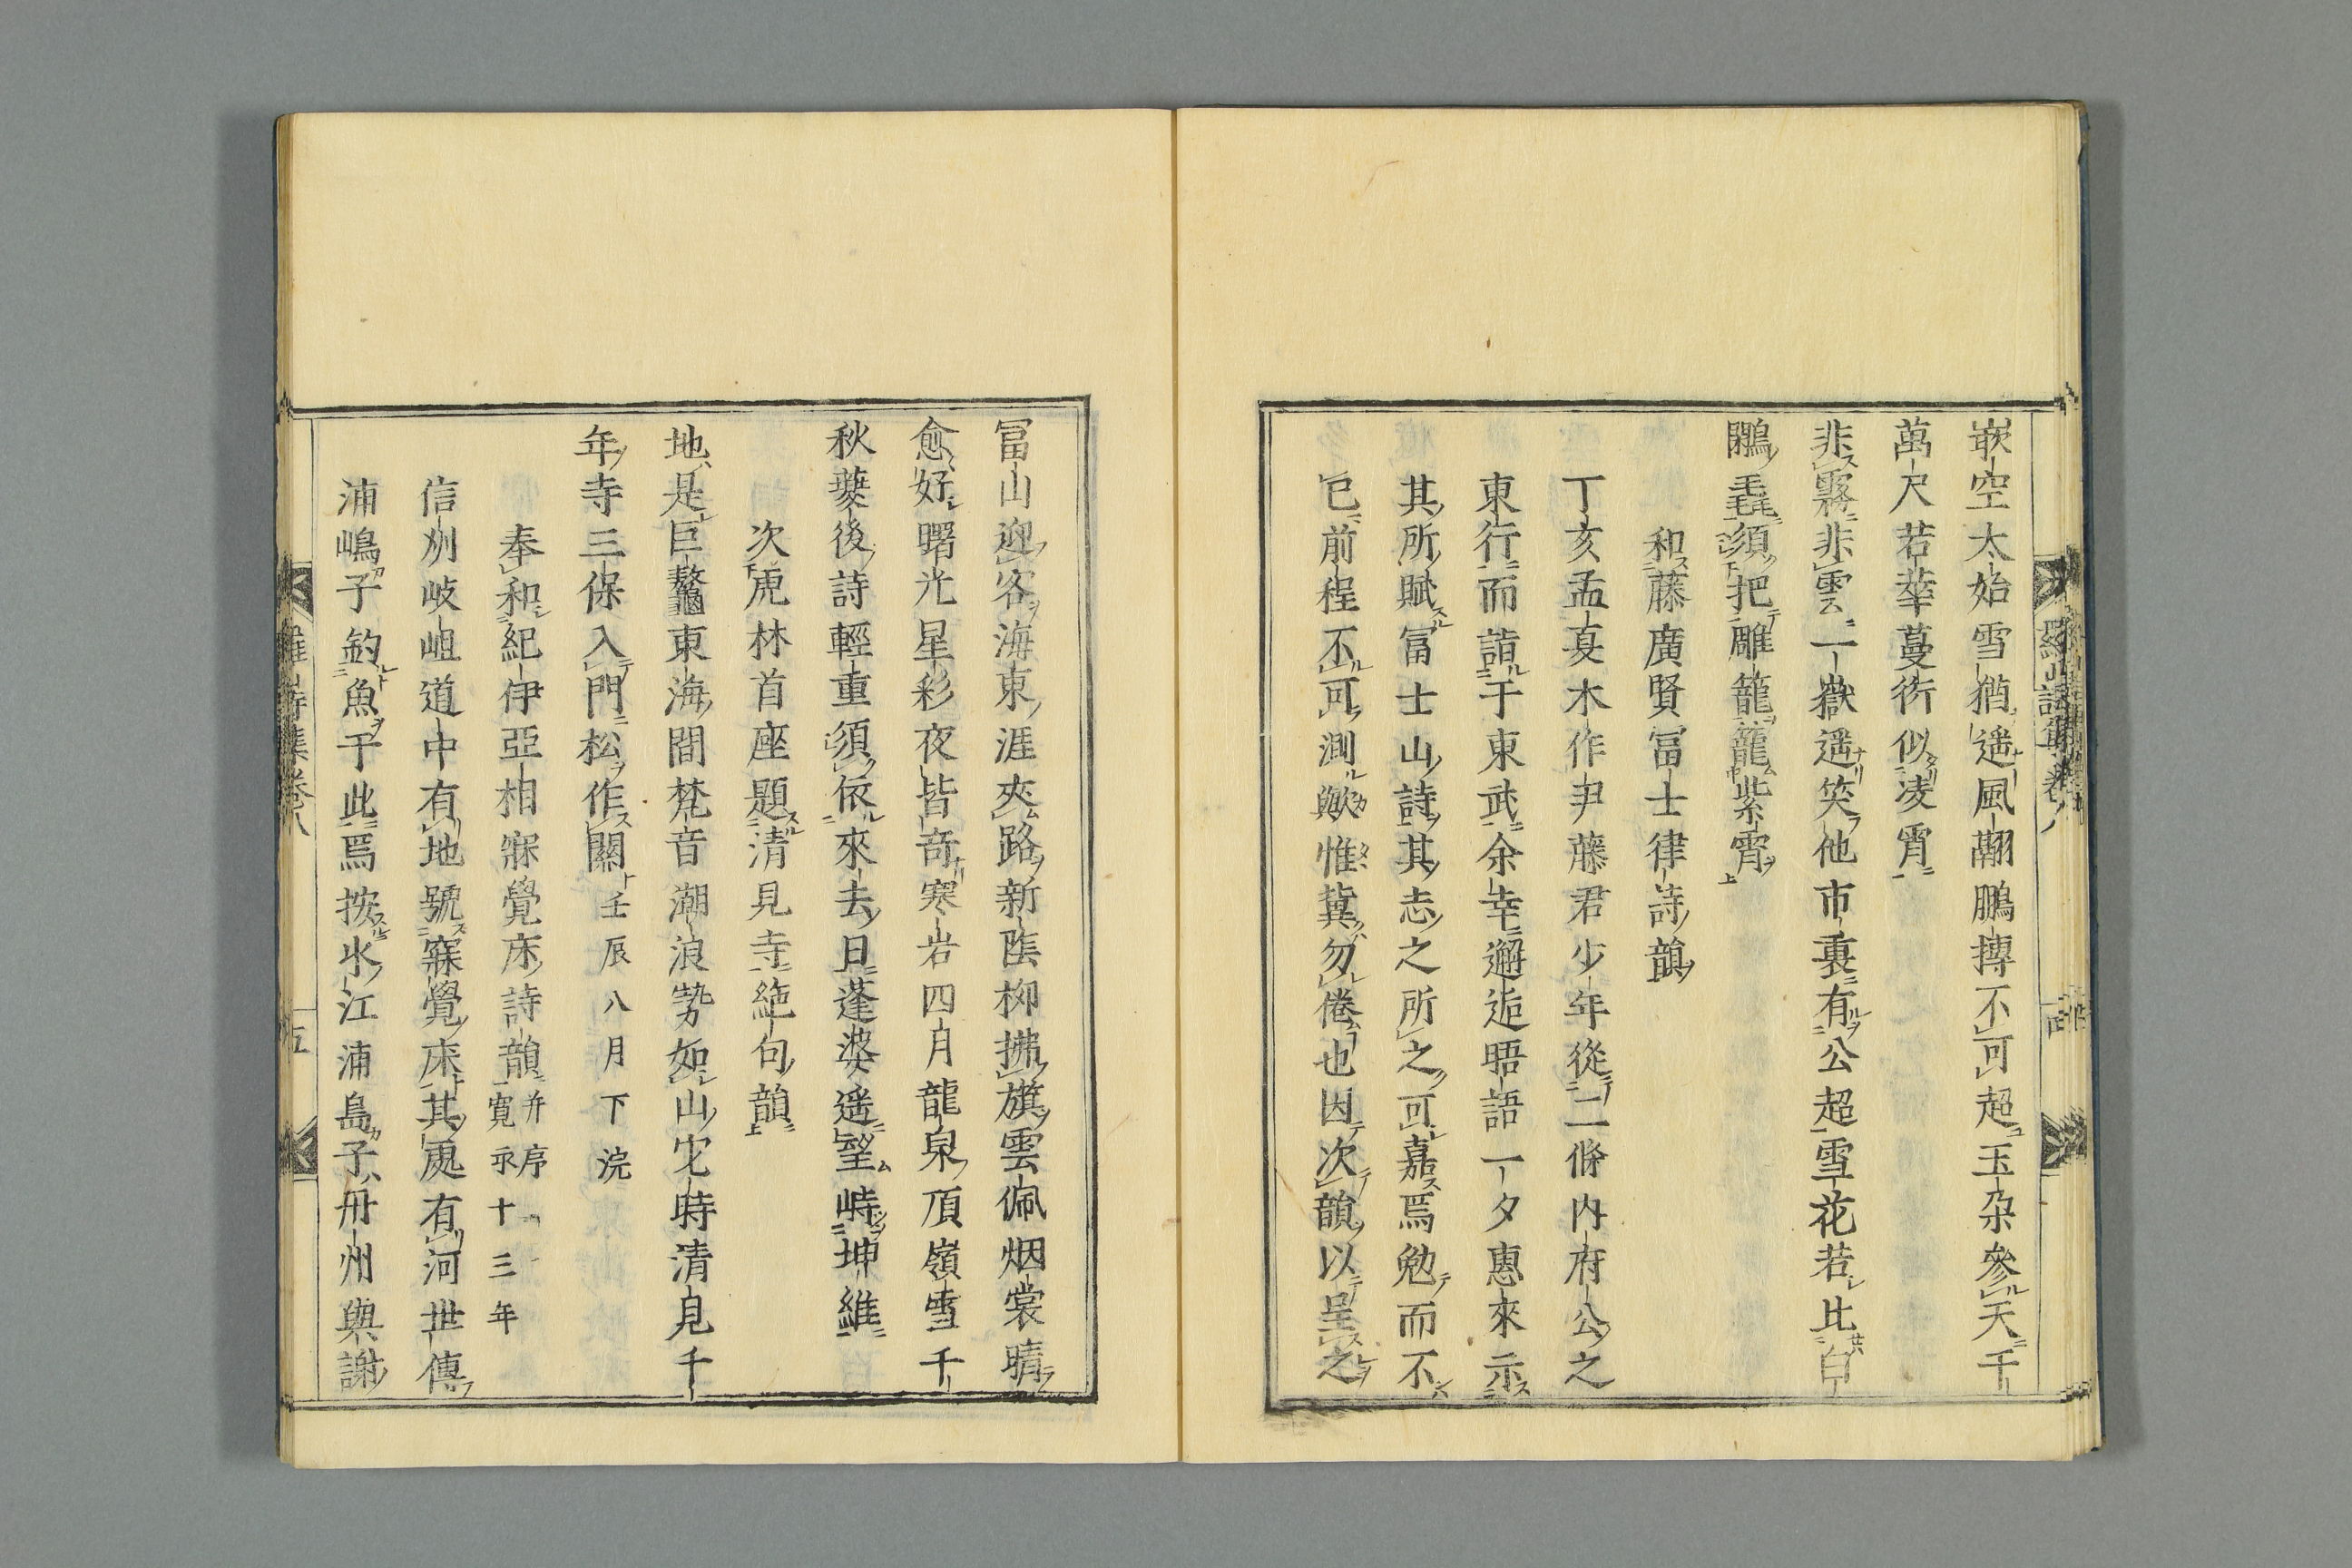 嵌空太始雪猶遙風鶠鵬摶不可超玉朶參天千
萬尺若華蔓衍似凌霄
非霧非雲一嶽遥笑他市裏有公超雪花若比白
鷴毳須把雕籠籠紫霄
和藤廣賢冨士律詩韻
丁亥孟夏木作尹藤君少年從二條内府公之
東行而詣于東武余幸邂逅晤語一夕惠來示
其所賦冨士山詩其志之所之可嘉焉勉而不
已前程不可測歟惟冀勿倦也因次韻以呈之
羅山詩集卷八
冨山迎客海東涯夾路新陰柳拂旗雲佩烟裳晴
愈好曙光星彩夜皆奇寒岩四月龍泉頂嶺雪千
秋蘷後詩輕重須依來去日蓬婆遥望峙坤維
次虎林首座題清見寺絶句韻
地是巨鼇東海間梵音潮浪勢如山定時清見千
年寺三保入門松作關壬辰八月下浣
奉和紀伊亞相寐覺床詩韻并序寬永十三年
信州岐岨道中有地號寐覺床其處有河世傳
浦嶋子釣魚于此焉按水江浦島子丹州與謝
羅山詩集卷八
五